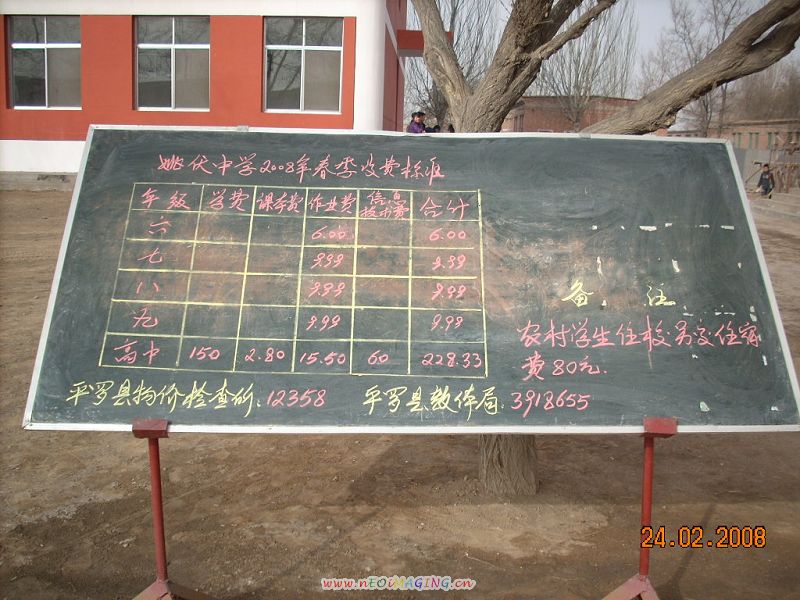 姚伏中学2008年春季收费标准
年级 学费 课本费 作业费 信息技术费 合计
六 6.00 6.00
七 9.99 9.99
八 9.99 9.99
九 9.99 9.99
高中 150 2.80 15.50 60 228.33
备注
农村学生住校另交住宿
费80元.
平罗县物价检查所:12358 平罗县教体局:3918655
24.02.2008
www.nEOiMAGING.cn